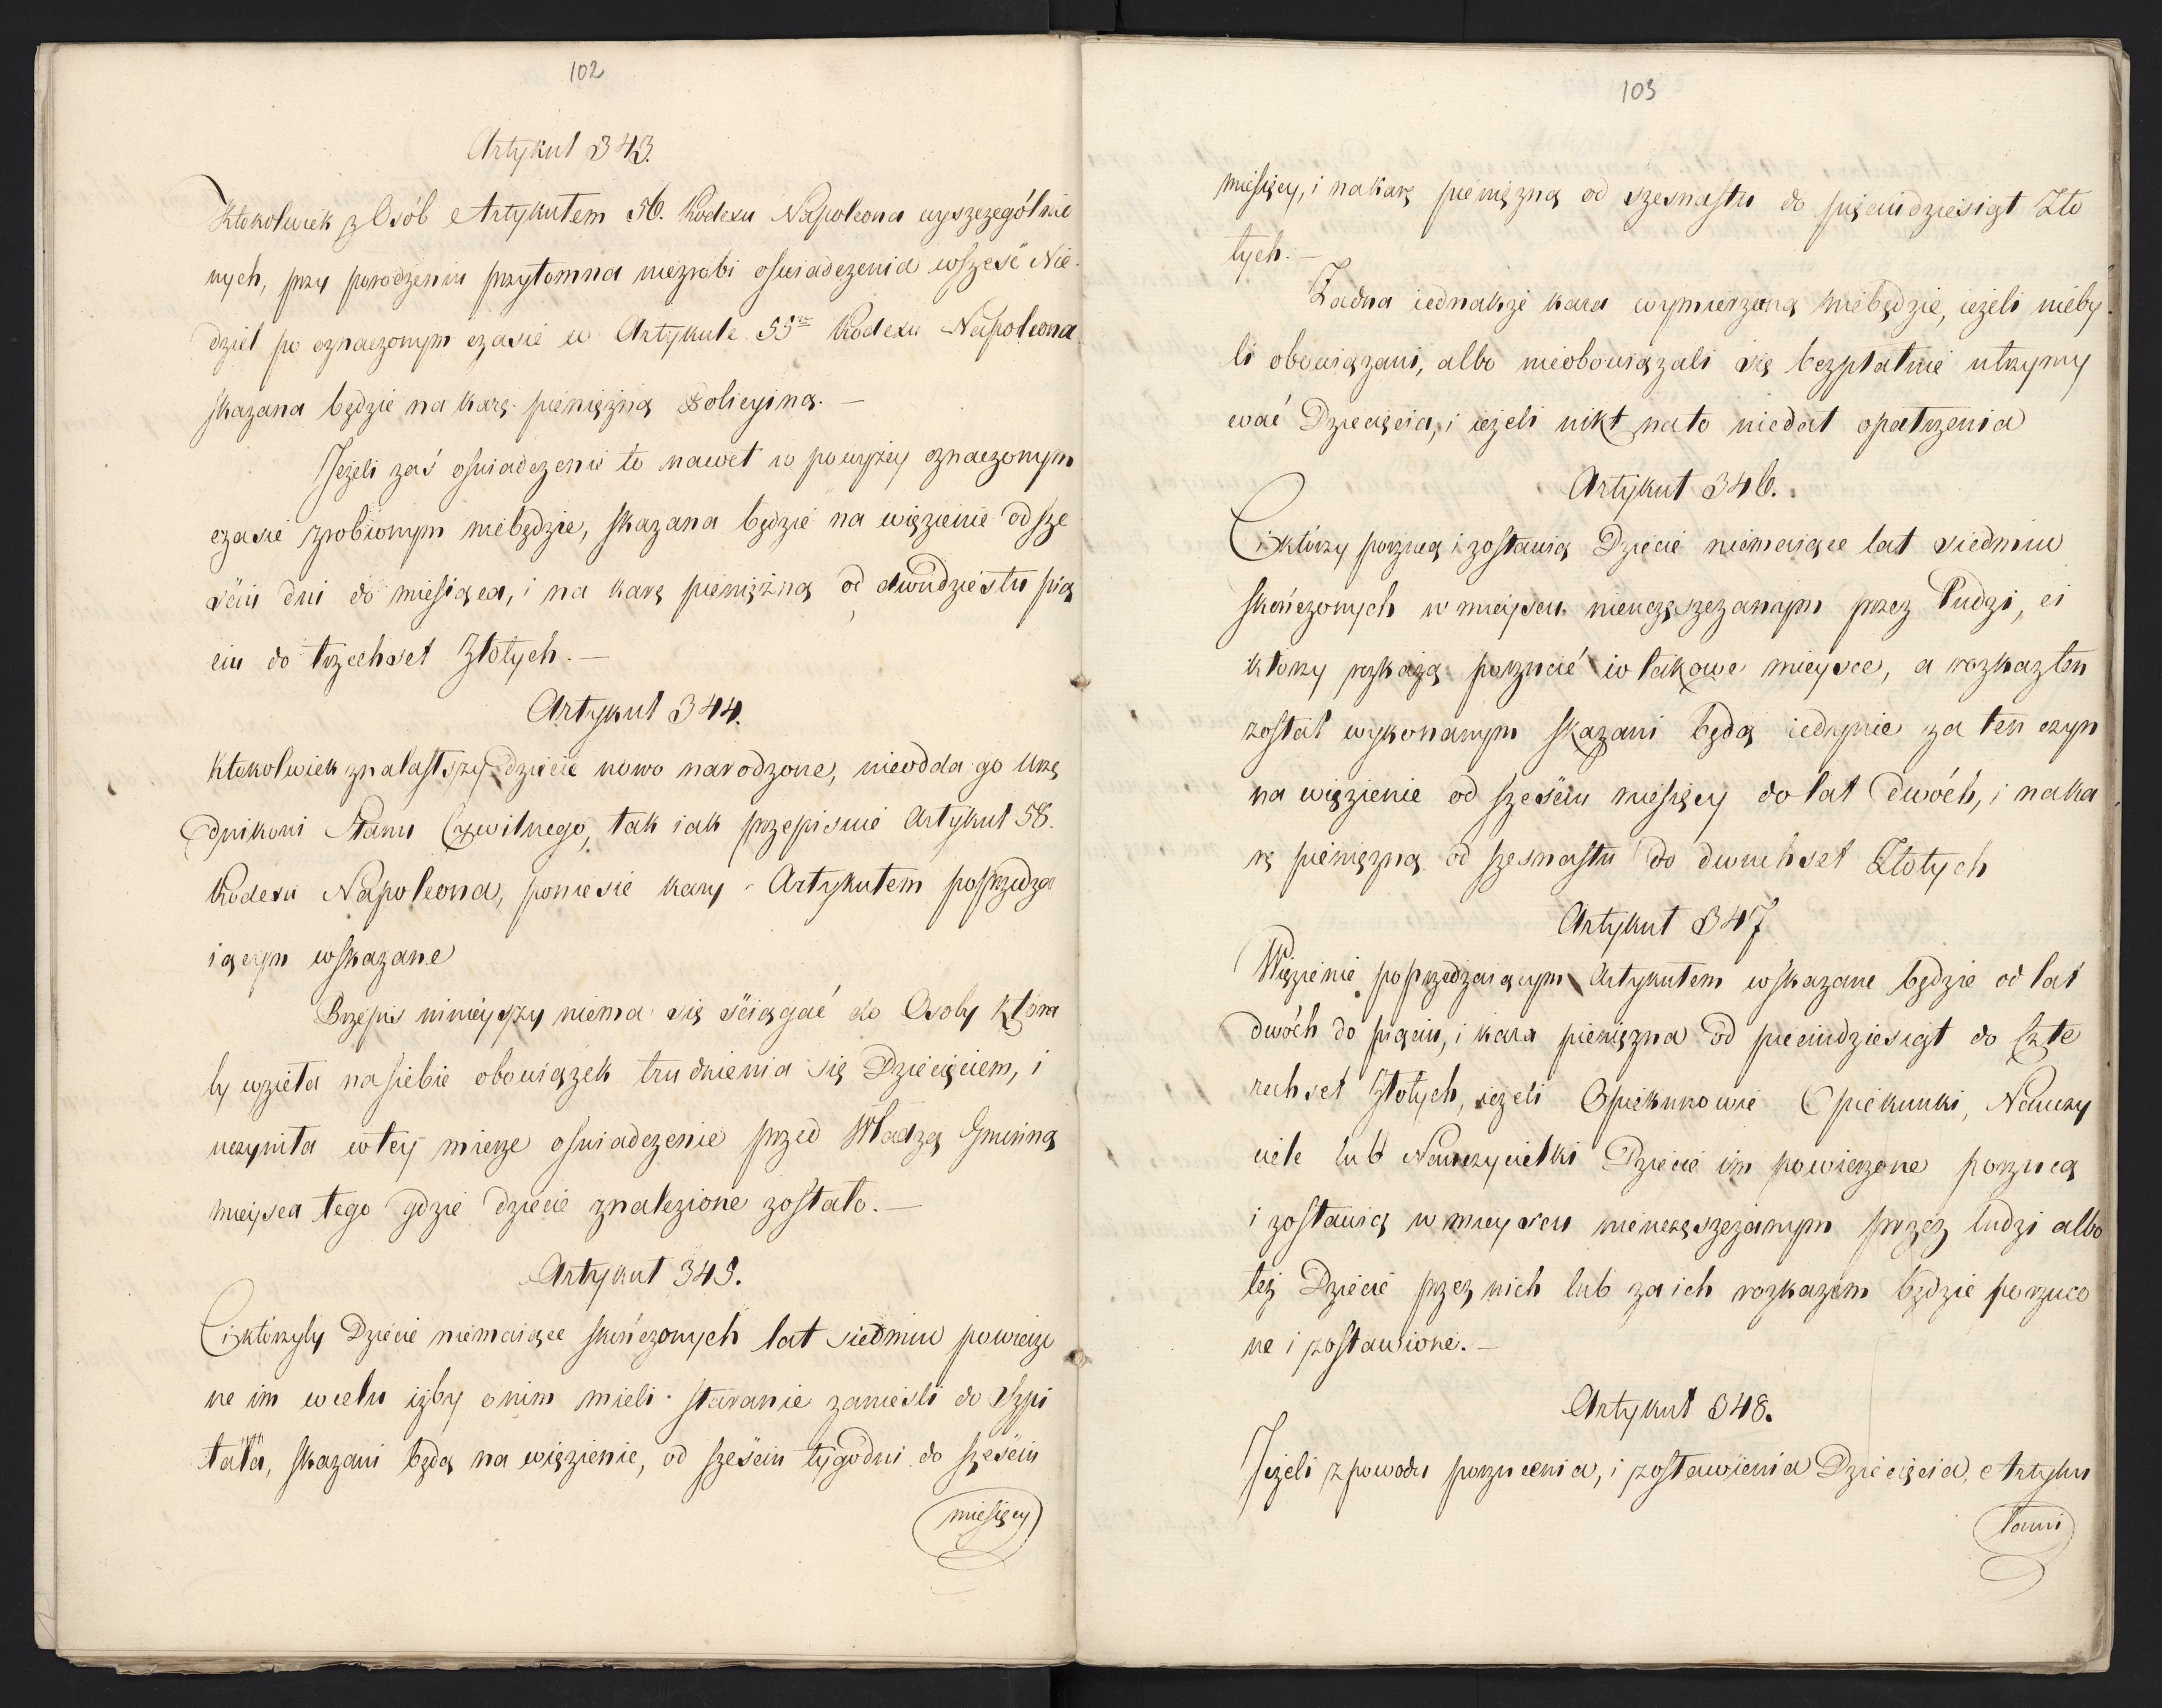 102
Artykuł 343.
Ktokolwiek z Osób Artykułem 56. Kodexu Napoleona wyszczególnio
nych, przy porodzeniu przytomna niezrobi oświadczenia wsześć Nie
dziel po oznaczonym czasie w Artykule 55m Kodexu Napoleona
skazana będzie na karę pieniężną Policyiną. —
Jeżeli zaś oświadczenie to nawet w powyżey oznaczonym
czasie zrobionym niebędzie, skazana będzie na więzienie od sze
ściu dni do miesiąca, i na karę pieniężną od dwudziestu pię
ciu do trzechset Złotych. —
Artykuł 344.
Ktokolwiek znalastszy dziecie nowo narodzone, nieodda go Urzę
dnikowi Stanu Cywilnego, tak iak przepisuie Artykuł 58.
Kodexu Napoleona, poniesie kary Artykułem poprzedza
iącym wskazane
Przepis ninieyszy niema się ściągać do Osoby która
by wzieła nasiebie obowiązek trudnienia się Dziecięciem, i
uczyniła wtey mierze oświadczenie przed Władzą Gminną
mieysca tego gdzie dziecie znalezione zostało. —
Artykuł 345.
Ci którzyby Dziecie niemaiące skończonych lat siedmiu powierzo
ne im wcelu iżby onim mieli staranie zanieśli do Szpi
tala, skazani będą na więzienie, od sześciu tygodni do sześciu
miesięcy
103
miesięcy, i nakarę pieniężną od szesnastu do pięciudziesiąt Zło
tych. —
Żadna iednakże kara wymierzoną niebędzie, ieżeli nieby
li obowiązani, albo nieobowiązali się bezpłatnie utrzymy
wać Dziecięcia, i ieżeli nikt nato niedał opatrzenia
Artykuł 346.
Ci którzy porzucą i zostawią Dziecie niemaiące lat siedmiu
skończonych w mieyscu nieuczęszczanym przez Ludzi, ci
którzy rozkażą porzucić w takowe mieysce, a rozkaz ten
został wykonanym skazani będą iedynie za ten czyn
na więzienie od sześciu miesięcy do lat dwóch, i naka
rę pieniężną od szesnastu do dwuchset Złotych
Artykuł 347
Więzienie poprzedzaiącym Artykułem wskazane będzie od lat
dwóch do pięciu, i kara pieniężna od pieciudziesiąt do Czte
rechset Złotych, ieżeli Opiekunowie Opiekunki, Nauczy
ciele lub Nauczycielki Dziecie im powierzone porzucą
i zostawią w mieyscu nieuczęszczanym przez ludzi albo
też Dziecie przez nich lub za ich rozkazem będzie porzuco
ne i zostawione. —
Artykuł 348.
Jeżeli z powodu porzucenia, i zostawienia Dziecięcia, Artyku
łami